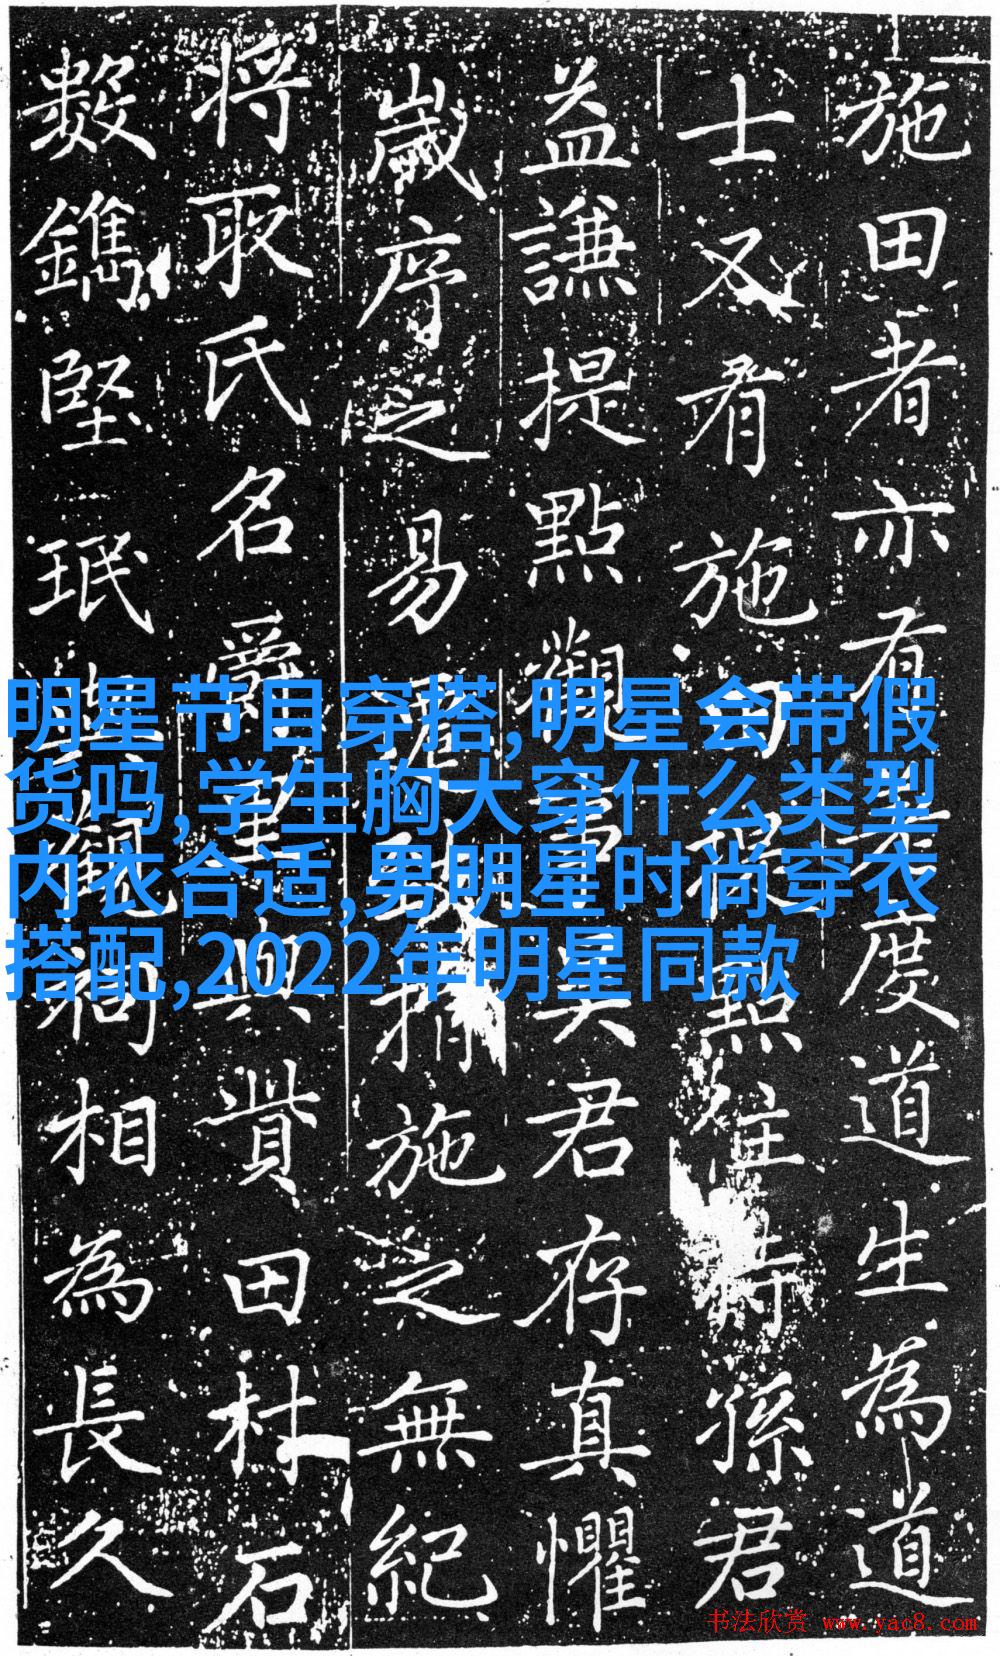 施田者亦有度道生為道
士又有施提點住持孫君
益謙提點觀事吳君存真懼
歲序之易捐施之無紀
將取氏名爵里與貲田杜石
數鐫堅珉與觀相為長久
明星节目穿搭,明星会带假
货吗,学生胸大穿什么类型
内衣合适,男明星时尚穿衣
搭配,2022年明星同款
书法欣赏 www.yac8.com